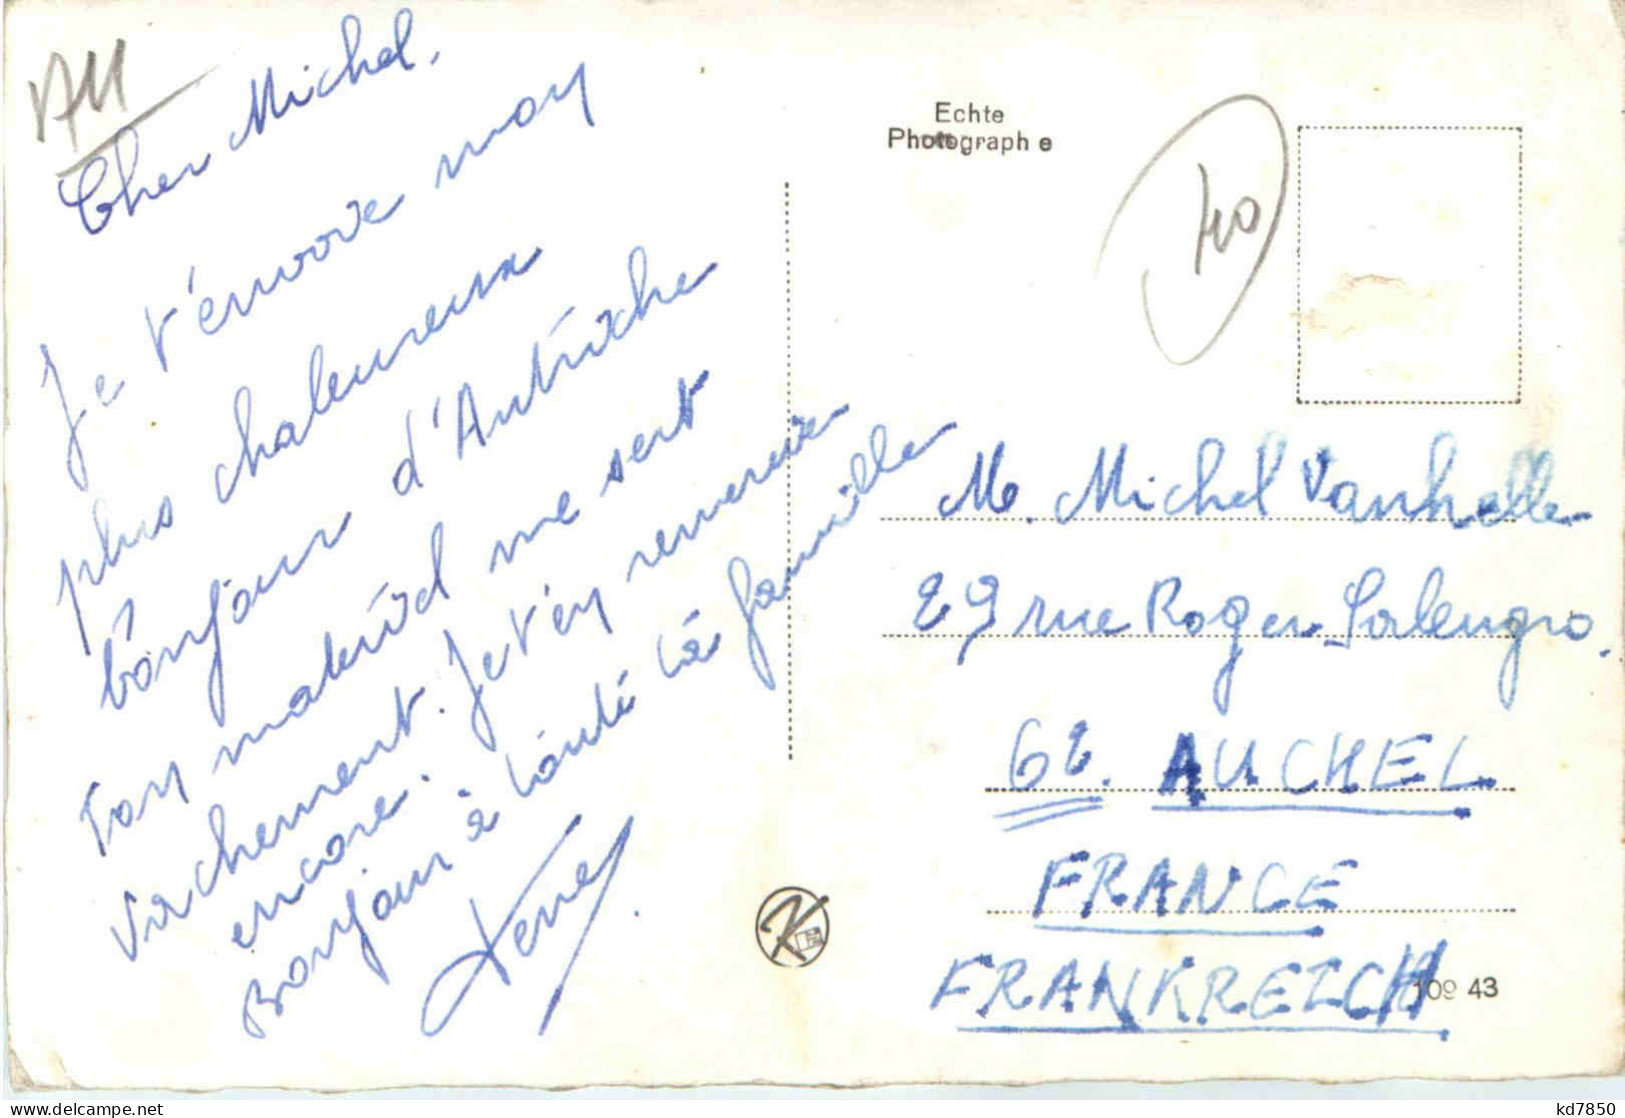 Cher Michel.
Je t'envoie mon
plus chaleureux
bonjour d'Autriche
Ton matériel me sert
vachement. Je t'en remercie
encore.
Bonjour à toute la famille
Echte
Photographie
40
M. Michel Vanhelle
29 rue Roger Salengro.
62. AUCHEL
FRANCE
FRANKREICH
109 43
K
kd7850